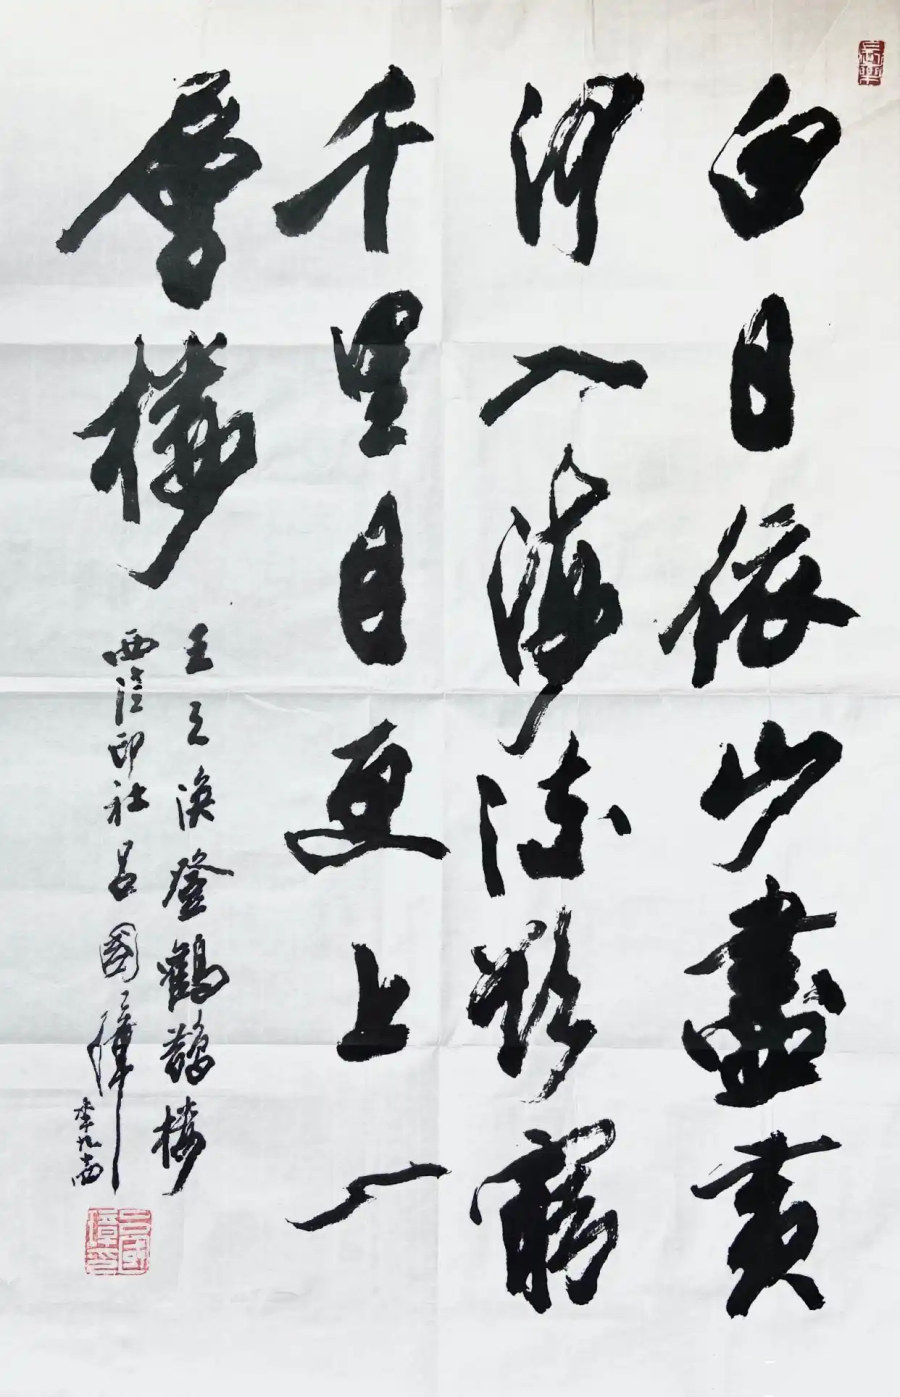 白日依山盡黃
河入海流欲窮
千里目更上一
層樓
王之渙登鸛鵲樓
西泠印社呂國璋
呂國璋印